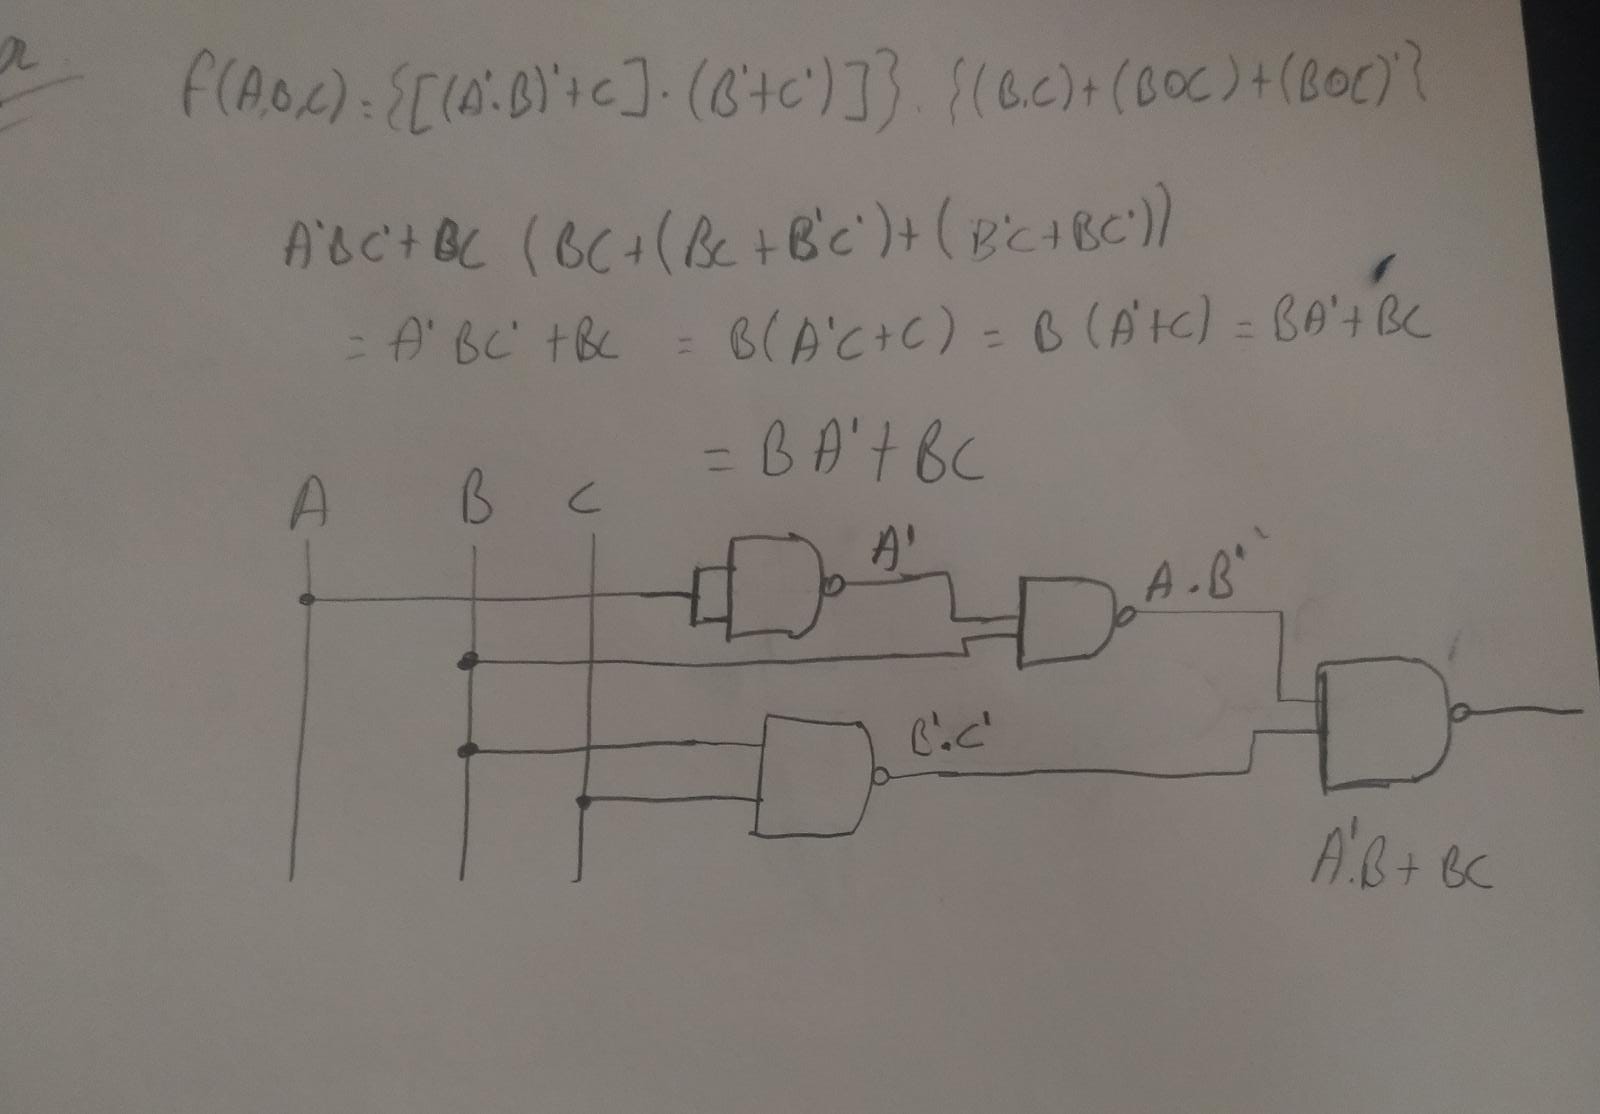 a
f(A,B,C) = {[(A'.B)'+C].(B'+C')]}.{(B.C)+(BOC)+(BOC)'}
A'BC'+BC (BC+(BC+B'C')+(B'C+BC'))
= A'BC'+BC = B(A'C+C) = B(A'+C) = BA'+BC
= BA'+BC
A B C
A' A.B'
B'.C'
A'.B+BC